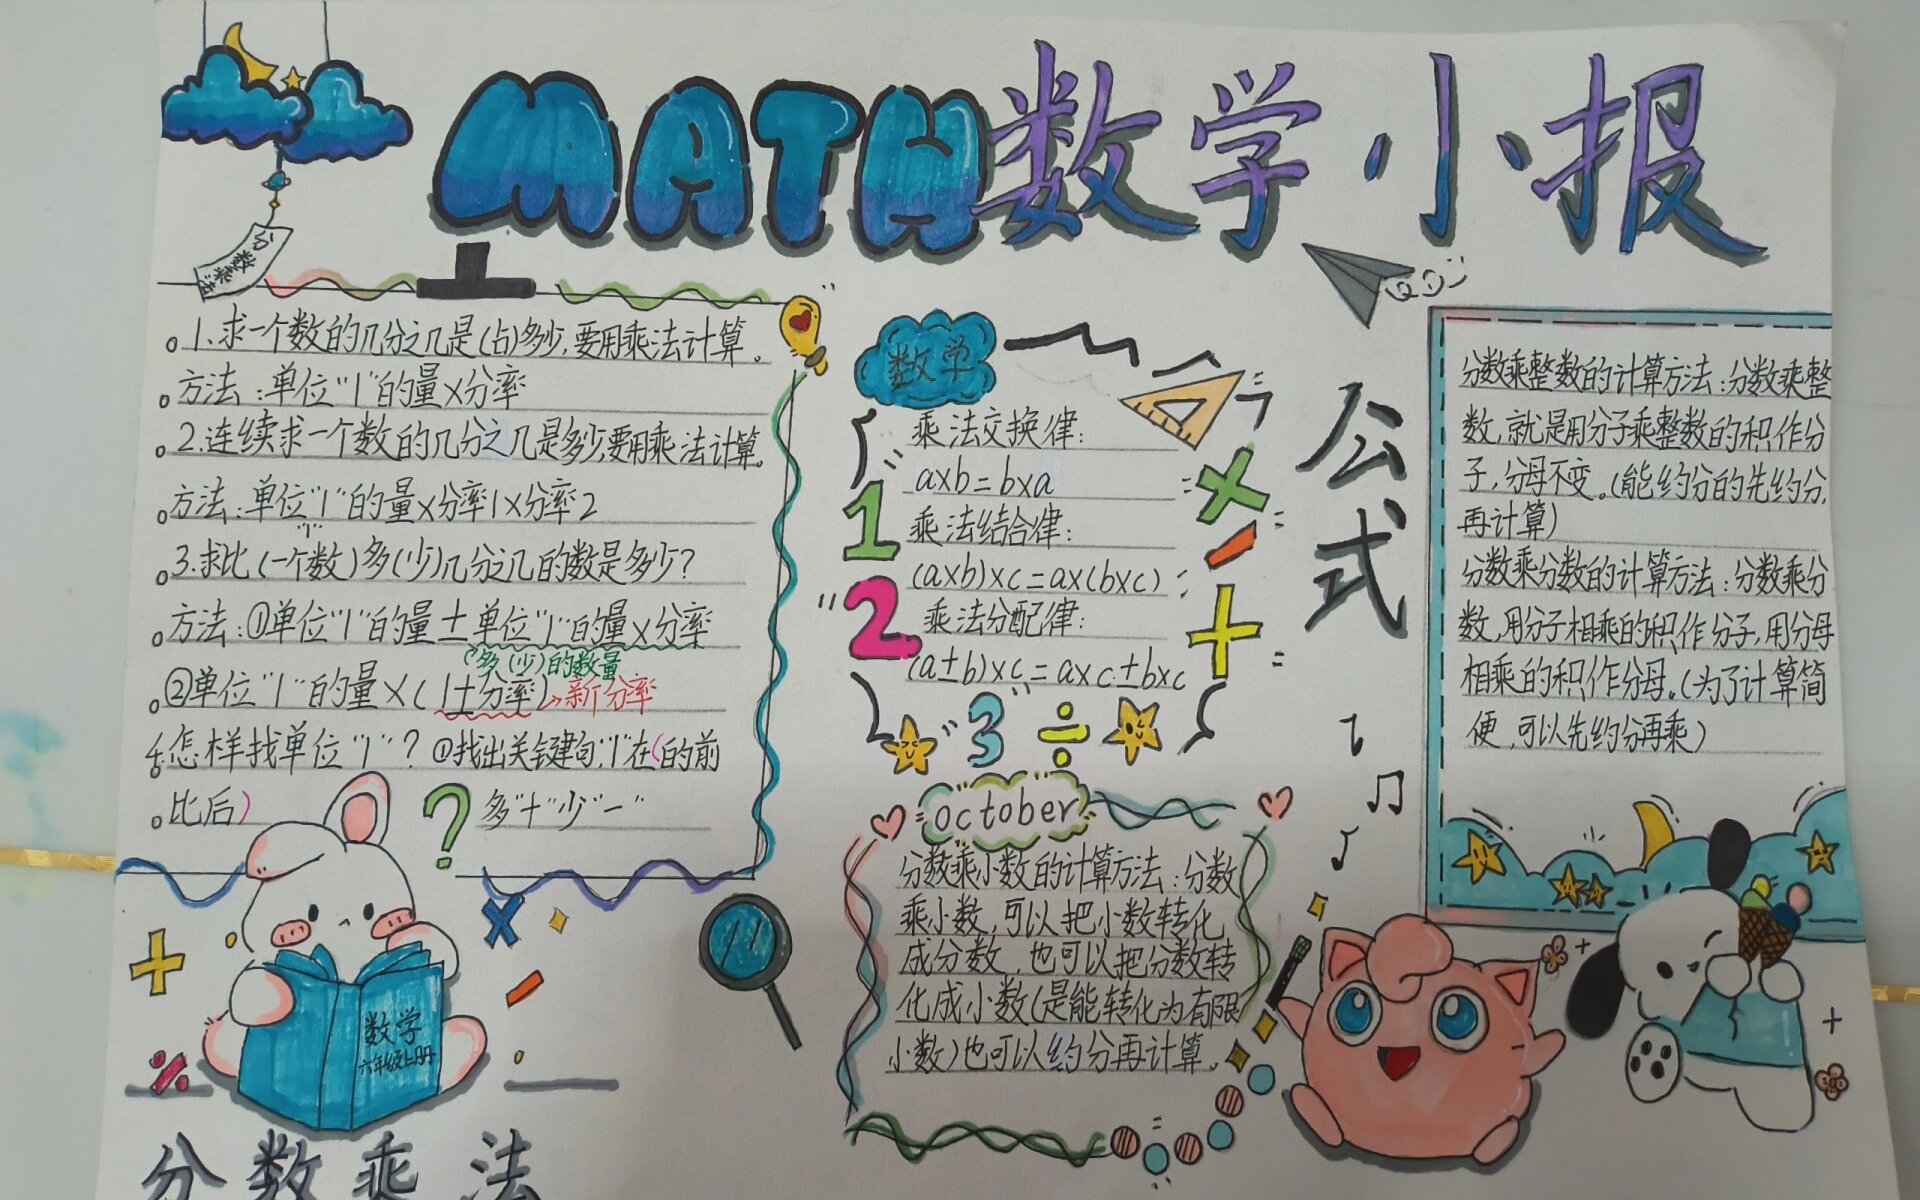 MATH数学小报
分数乘法
1、求一个数的几分之几是(占)多少,要用乘法计算。
方法:单位"1"的量×分率
2.连续求一个数的几分之几是多少,要用乘法计算。
方法:单位"1"的量×分率1×分率2
"1"
3.求比(一个数)多(少)几分之几的数是多少?
方法:①单位"1"的量±单位"1"的量×分率
多(少)的数量
②单位"1"的量×(1±分率)→新分率
4.怎样找单位"1"? ①找出关键句,"1"在(的前
比后)
? 多"+"少"-"
数学
六年级上册
分数乘法
数学
乘法交换律:
a×b=b×a
乘法结合律:
(a×b)×c=a×(b×c)
乘法分配律:
(a±b)×c=a×c±b×c
1
2
3
÷
×
-
+
october
分数乘小数的计算方法:分数
乘小数,可以把小数转化
成分数,也可以把分数转
化成小数(是能转化为有限
小数)也可以约分再计算。
公式
分数乘整数的计算方法:分数乘整
数,就是用分子乘整数的积作分
子,分母不变。(能约分的先约分,
再计算)
分数乘分数的计算方法:分数乘分
数,用分子相乘的积作分子,用分母
相乘的积作分母。(为了计算简
便,可以先约分再乘)